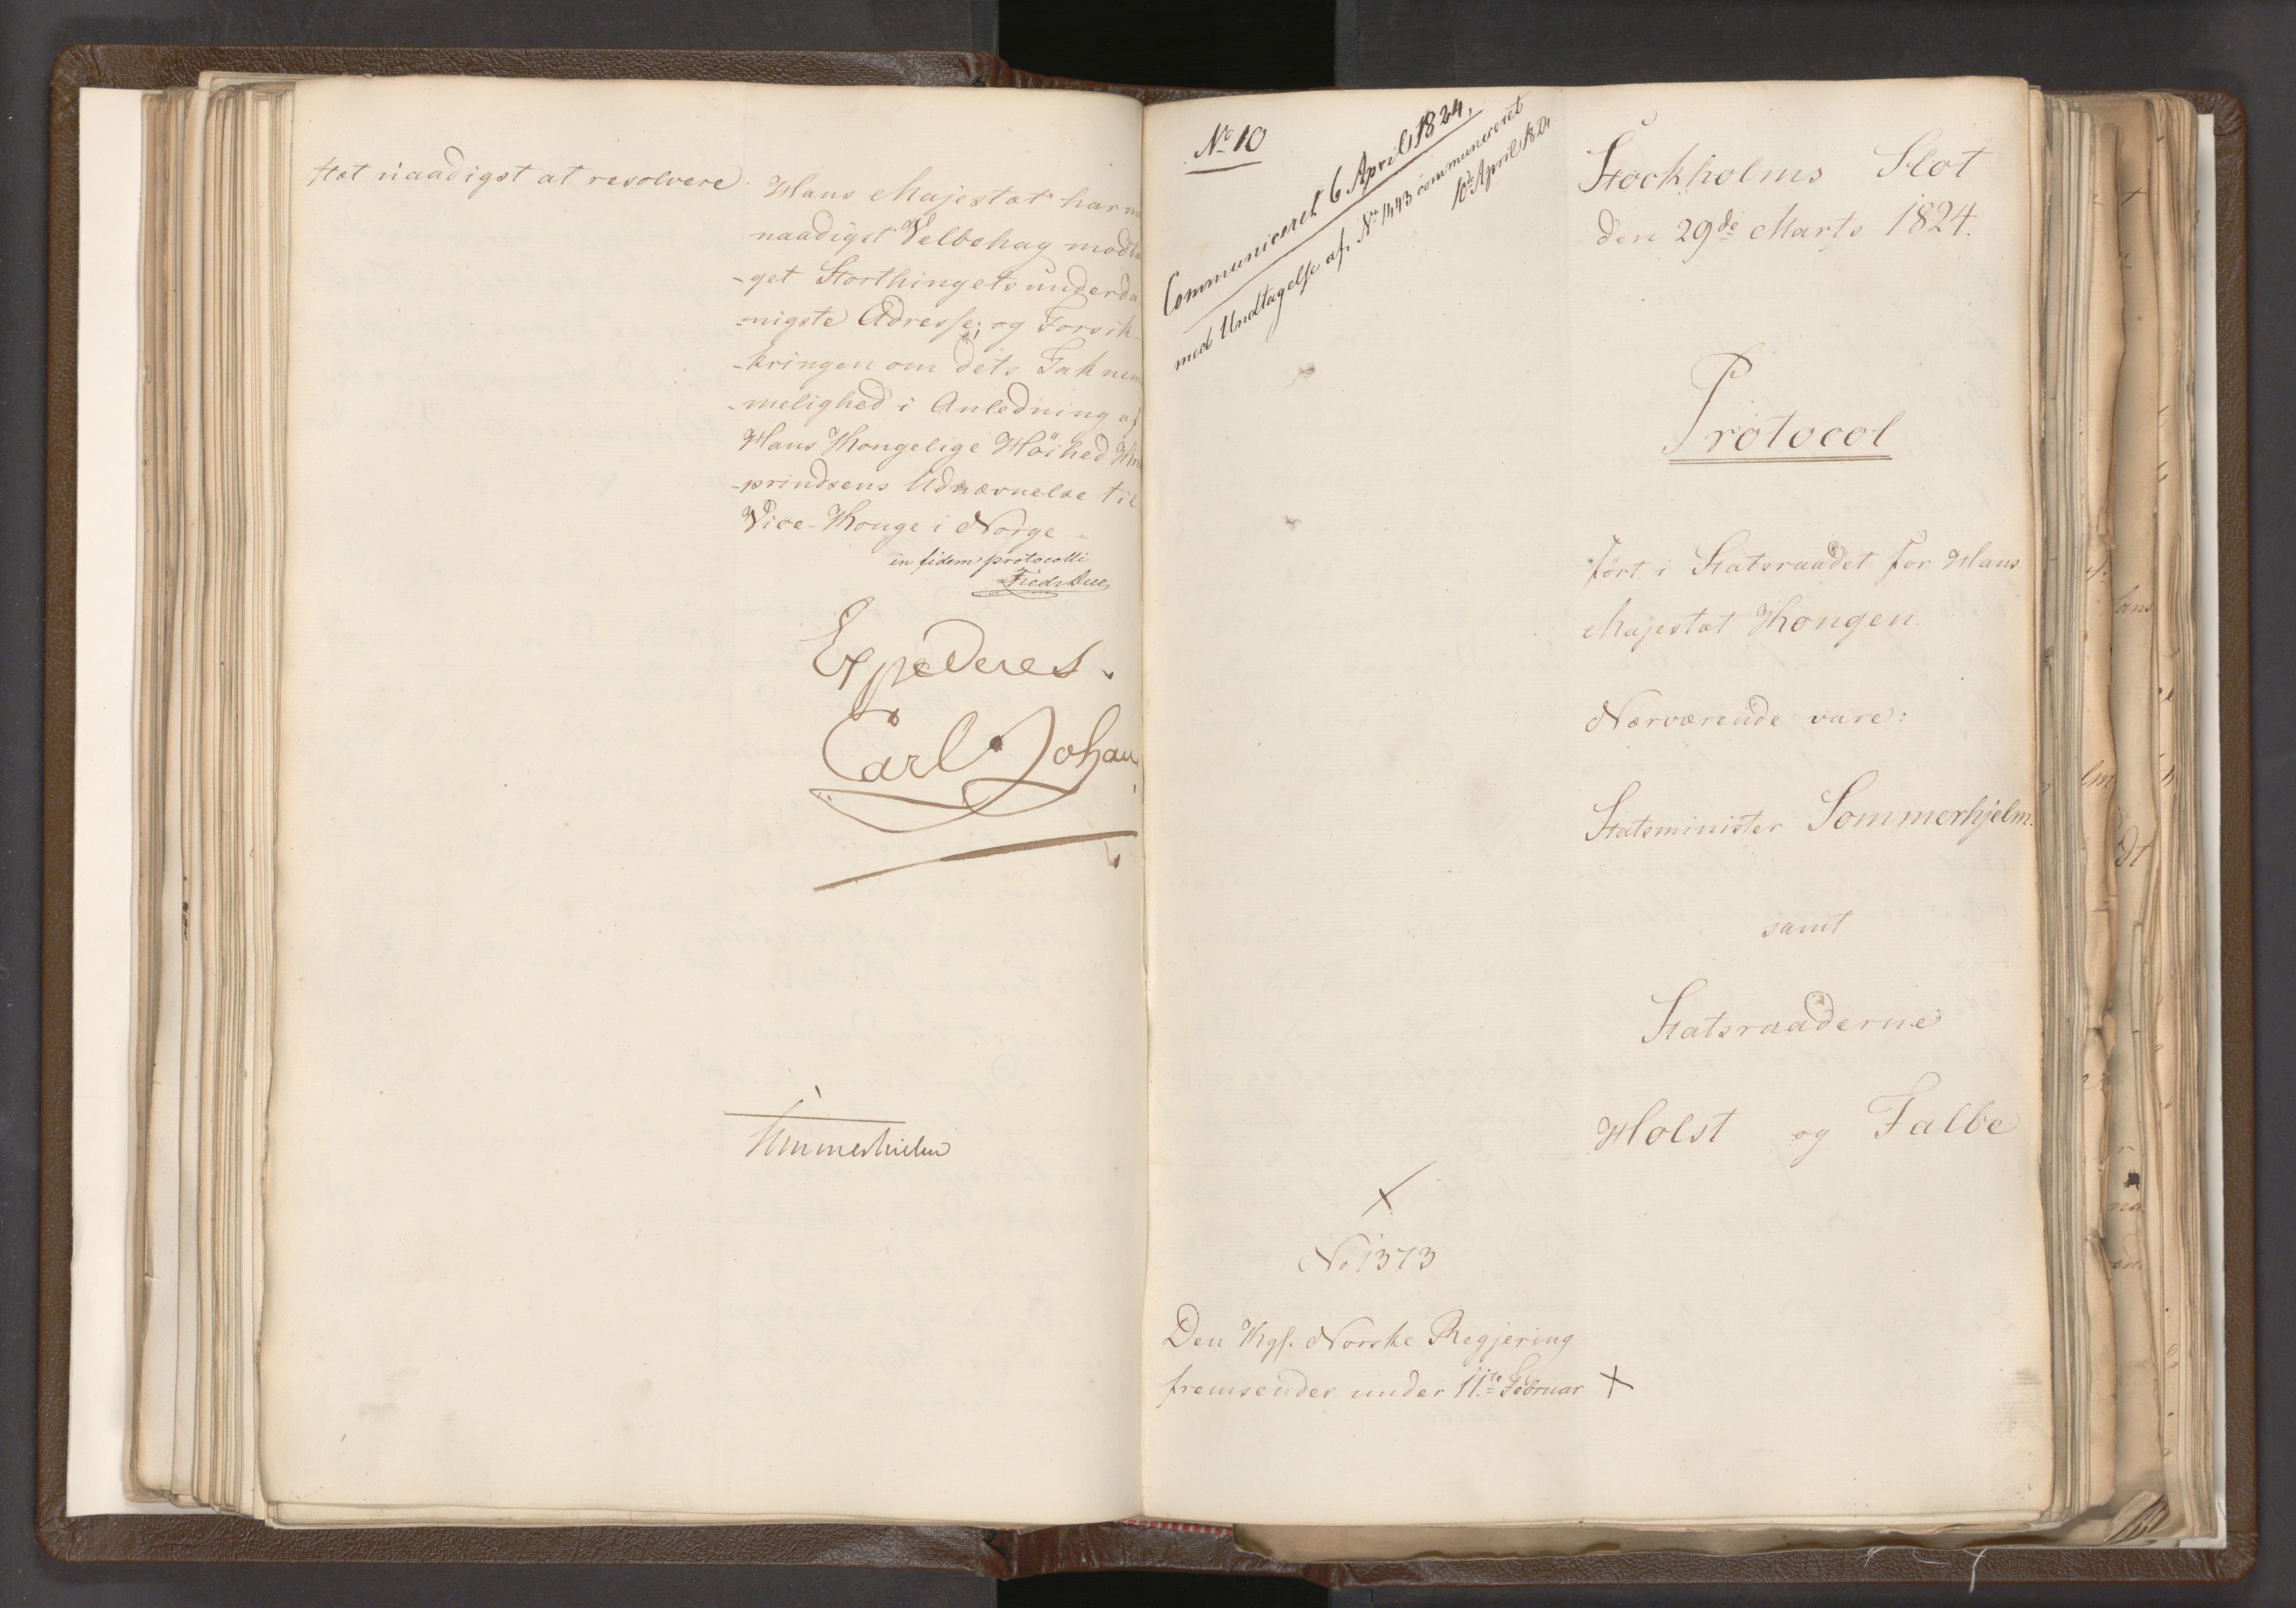 tet naadigst at resolvere
Hans Majestæt har m
naadigst Velbehag modta
-get Storthingets underda
-nigste Adresse, og Forsik-
-kringen om dets Taknem
-melighed i Anledning af
Hans Kongelige Höihed Kro
-prindsens Udnævnelse til
Vice-Konge i Norge
in fidem protocolli
Fredr Due
Expederes.
Carl Johan
Sommerhielm
No 10
Communiceret 6 April 1824,
med Undtagelse af No 1443 communiceret
10de April 1824
Stockholms Slot
den 29de Marts 1824.
Protocol
fört i Statsraadet for Hans
Majestæt Kongen.
Nærværende vare:
Statsminister Sommerhjelm.
samt
Statsraaderne
Holst og Falbe
No 1373
Den Kgl. Norske Regjering
fremsender under 11te Februar